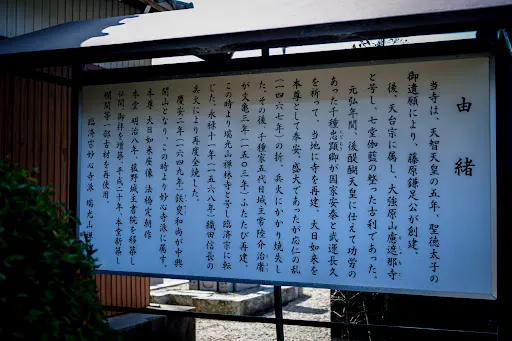 由緒
当寺は、天智天皇の五年、聖徳太子の
御遺願により、藤原鎌足公が創建。
後、天台宗に属し、大強原山廬遮那寺
と号し、七堂伽藍の整った古刹であった。
元弘年間、後醍醐天皇に仕えて功労の
あった千種忠顕卿が国家安泰と武運長久
を祈って、当地に寺を再建、大日如来を
本尊として奉安、盛大であったが応仁の乱
(一四六七年)の折、兵火にかかり焼失し
た。その後、千種家五代目城主常陸介治庸
が文亀三年(一五〇三年)ふたたび再建。
この時より瑞光山禅林寺と号し臨済宗に転
じた。永禄十一年(一五六八年)織田信長の
兵火により再度全焼した。
慶安二年(一六四九年)鉄叟和尚が中興
開山となり、この時より妙心寺派に属す。
本尊 大日如来座像 法橋定朝作
本堂 明治八年、菰野城主書院を移築し
仏間、御拝を増築、平成二十年、本堂新築し
欄間等一部古材を再使用。
臨済宗妙心寺派 瑞光山禅